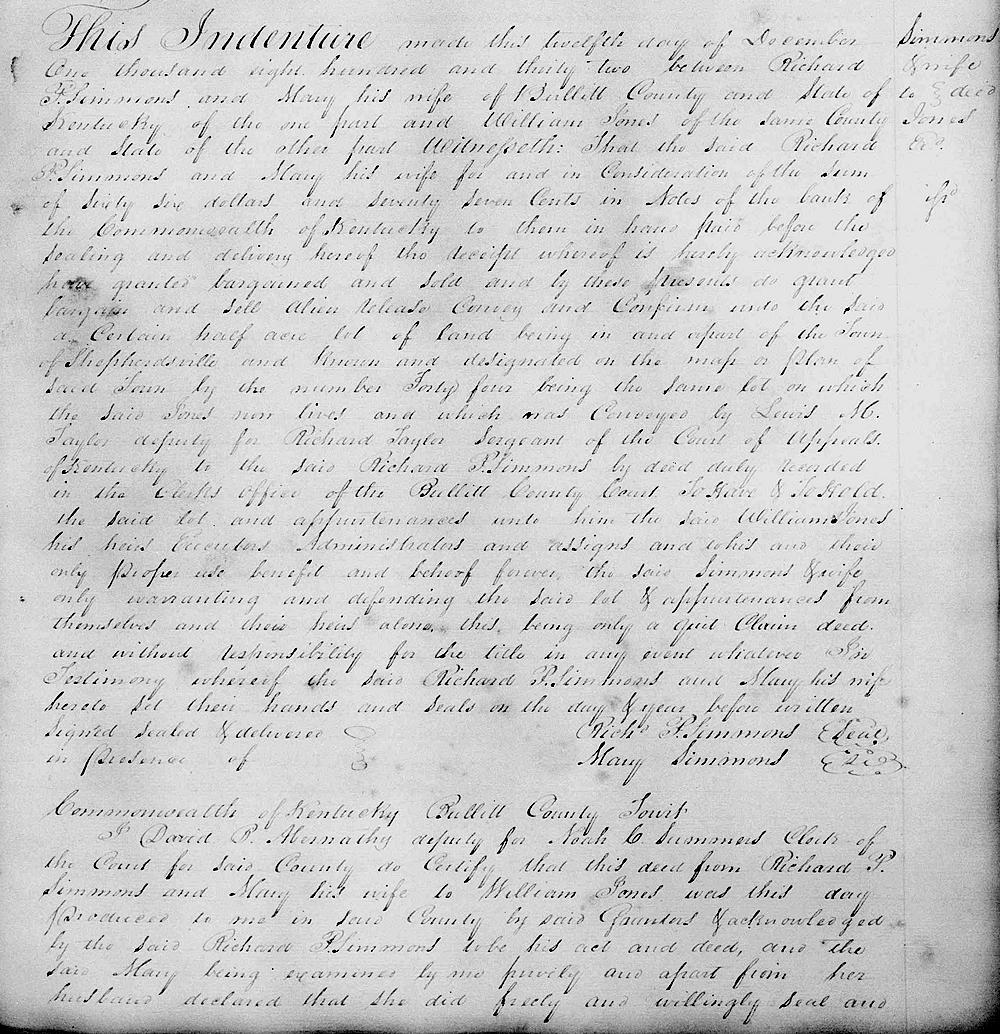 This Indenture made this twelfth day of December
One thousand eight hundred and thirty two between Richard
P. Simmons and Mary his wife of Bullitt County and State of
Kentucky of the one part and William Jones of the same County
and State of the other part Witnesseth: That the said Richard
P. Simmons and Mary his wife for and in Consideration of the Sum
of Sixty Six dollars and seventy seven Cents in Notes of the bank of
the Commonwealth of Kentucky to them in hand paid before the
sealing and delivery hereof the receipt whereof is hereby acknowledged
have granted bargained and sold and by these presents do grant
bargain and sell alien release Convey and Confirm unto the said
a Certain half acre lot of land being in and apart of the Town
of Shepherdsville and Known and designated on the map or plan of
said Town by the number Forty four being the same lot on which
the said Jones now lives and which was Conveyed by Lewis M.
Taylor deputy for Richard Taylor Sergeant of the Court of Appeals.
of Kentucky to the said Richard P. Simmons by deed duly recorded
in the Clerks office of the Bullitt County Court To Have & To Hold.
the said lot and appurtenances unto him the said William Jones
his heirs Executors Administrators and assigns and to his and their
only proper use benefit and behoof forever, the said Simmons & wife
only warranting and defending the said lot & appurtenances from
themselves and their heirs alone, this being only a quit Claim deed.
and without responsibility for the title in any event whatever In
Testimony whereof the said Richard P. Simmons and Mary his wife
hereto set their hands and seals on the day & year before written
Signed sealed & delivered
in presence of
Richd P. Simmons Seal
Mary Simmons
Simmons
& wife
to deed
Jones
Commonwealth of Kentucky Bullitt County Towit
I David P. Abernathy deputy for Noah C. Summers Clerk of
the Court for said County do Certify that this deed from Richard P.
Simmons and Mary his wife to William Jones was this day
produced to me in said County by said Grantors & acknowledged
by the said Richard P. Simmons to be his act and deed, and the
said Mary being examined by me privily and apart from her
husband declared that she did freely and willingly seal and